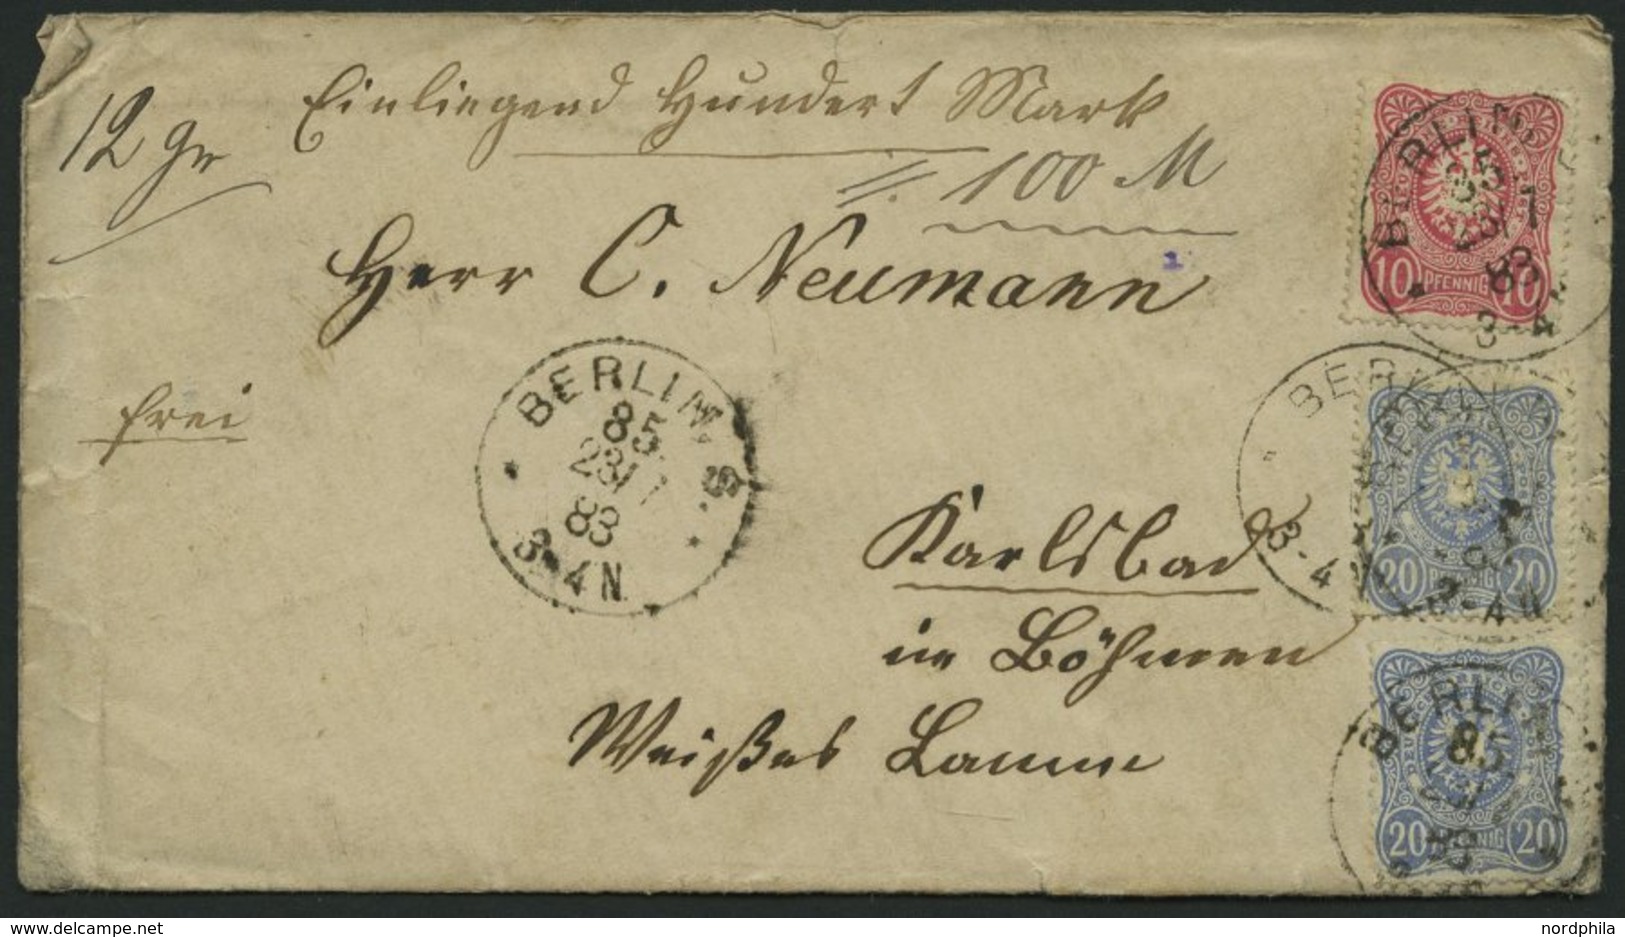 Einliegend Hundert Mark
12 gr
= 100 M
Herr C. Neumann
frei
Karlsbad
in Böhmen
Weißes Lamm
BERLIN, S.
85
23/7
83
3-4N
BERLIN
85
23/7
83
3-4
10 PFENNIG 10
BERLIN
3-4
3-4N
20 PFENNIG 20
BERLIN
85
20 PFENNIG 20
nordphila